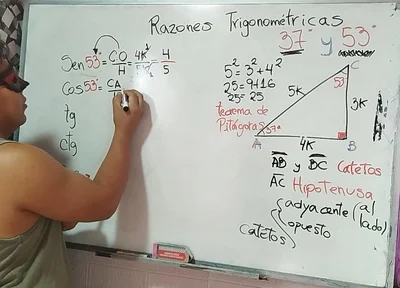 Razones Trigonométricas
37° y 53°
Sen 53° = C.O/H = 4K/5K = 4/5
Cos 53° = CA/
tg
ctg
5² = 3² + 4²
25 = 9+16
25 = 25
teorema de
Pitágoras
C
53°
5K
3K
37°
A
B
4K
AB y BC Catetos
AC Hipotenusa
Catetos
adyacente (al lado)
opuesto